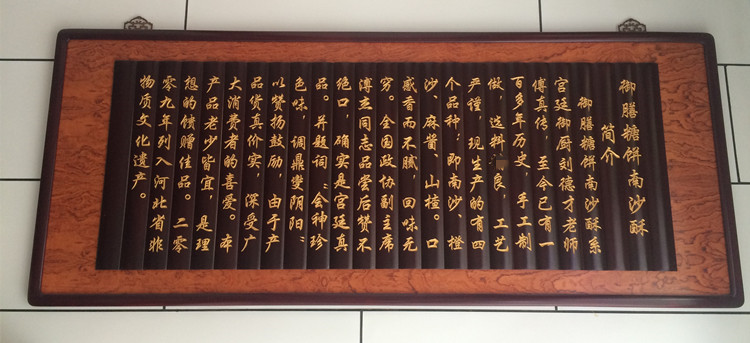 御膳糖饼南沙酥
简介
御膳糖饼南沙酥系
宫廷御厨刘德才老师
傅真传 至今已有一
百多年历史，手工制
做，选料良，工艺
严谨，现生产的有四
个品种，即南沙、橙
沙、麻酱、山楂。口
感香而不腻，回味无
穷。全国政协副主席
溥杰同志品尝后赞不
绝口，确实是宫廷真
品。并题词“会神珍
色味，调鼎燮阴阳”
以赞扬鼓励，由于产
品货真价实，深受广
大消费者的喜爱。本
产品老少皆宜，是理
想的馈赠佳品。二零
零九年列入河北省非
物质文化遗产。